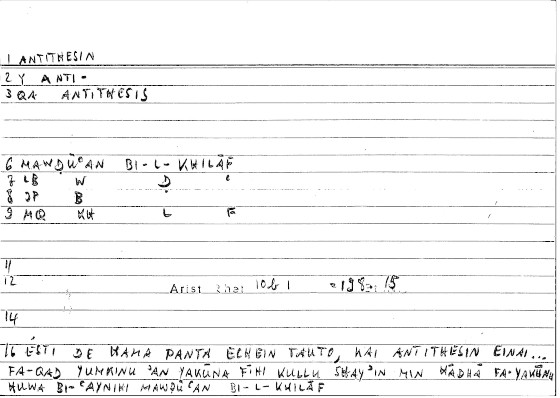 1 ANTITHESIN
2 Y ANTI-
3 QA ANTITHESIS
6 MAWḌŪʿAN BI-L-KHILĀF
7 LB W Ḍ ʿ
8 JP B
9 MQ KH L F
11
12 Arist Rhet 10b1 =198 15
14
16 ESTI DE HAMA PANTA ECHEIN TAUTO, KAI ANTITHESIN EINAI...
FA-QAD YUMKINU ʾAN YAKŪNA FĪHI KULLU SHAYʾIN MIN HĀDHĀ FA-YAKŪNU
HUWA BI-ʿAYNIHI MAWḌŪʿAN BI-L-KHILĀF